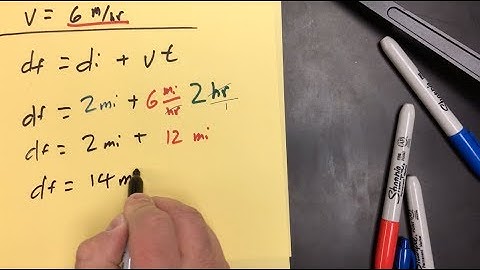 v = 6 m/hr
df = di + vt
df = 2mi + 6 mi/hr 2 hr/1
df = 2mi + 12 mi
df = 14 m
Sharpie
Sharpie